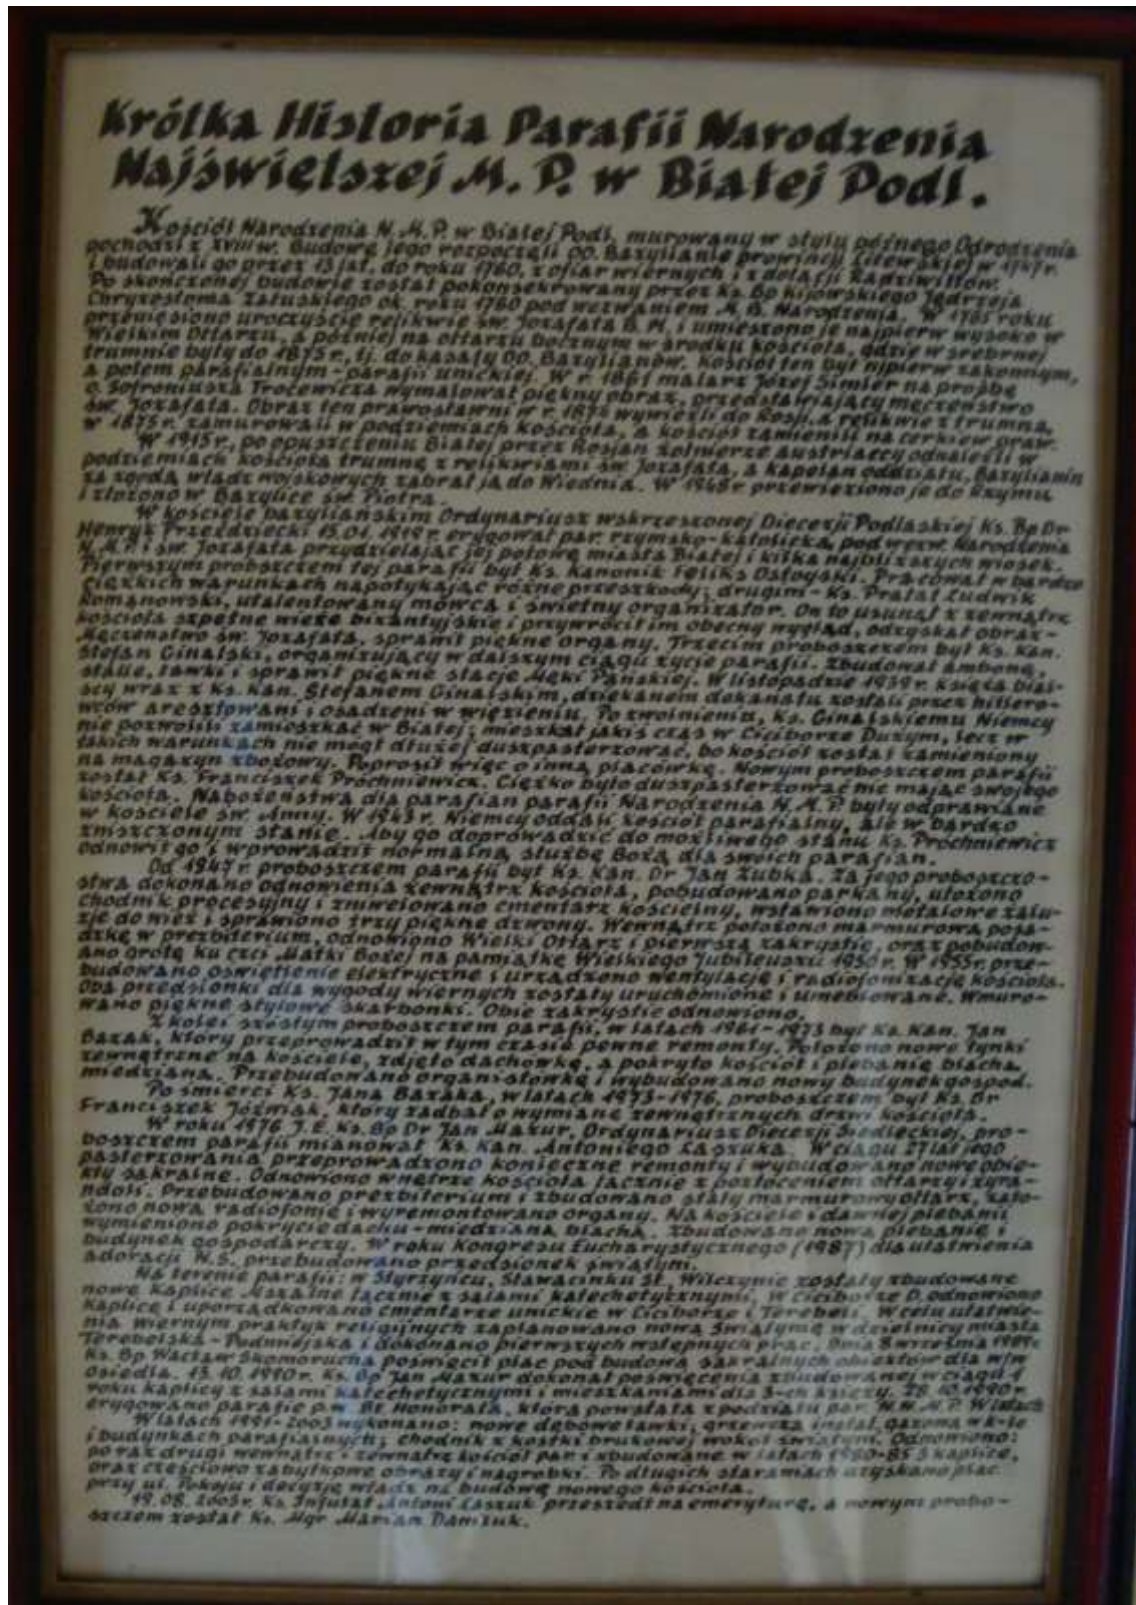 Krótka Historia Parafii Narodzenia
Najświętszej M. P. w Białej Podl.
Kościół Narodzenia N. M. P. w Białej Podl. murowany w stylu późnego Odrodzenia
pochodzi z XVIII w. Budowę jego rozpoczęli OO. Bazylianie prowincji Litewskiej w 1747 r.
i budowali go przez 13 lat, do roku 1760, z ofiar wiernych i z dotacji Radziwiłłów.
Po skończonej budowie został pokonsekrowany przez Ks. Bp Kijowskiego Jędrzeja
Chryzostoma Załuskiego ok. roku 1760 pod wezwaniem M. B. Narodzenia. W 1765 roku
przeniesiono uroczyście relikwie św. Jozafata B. M. i umieszono je najpierw wysoko w
Wielkim Ołtarzu, a później na ołtarzu bocznym w środku kościoła, gdzie w srebrnej
trumnie były do 1875 r., tj. do kasaty OO. Bazylianów. Kościół ten był nipierw zakonnym,
a potem parafialnym - parafii unickiej. W r. 1861 malarz Józef Simler na prośbę
o. Sofroniusza Trocewicza wymalował piękny obraz, przedstawiający męczeństwo
św. Jozafata. Obraz ten prawosławni w r. 1874 wywieźli do Rosji, a relikwie z trumną,
w 1875 r. zamurowali w podziemiach kościoła, a kościół zamienili na cerkiew praw.
W 1915 r., po opuszczeniu Białej przez Rosjan żołnierze austriaccy odnaleźli w
podziemiach kościoła trumnę z relikwiami św. Jozafata, a kapelan oddziału, Bazylianin
za zgodą władz wojskowych zabrał ją do Wiednia. W 1948 r. przewieziono je do Rzymu
i złożono w Bazylice św. Piotra.
W kościele bazyliańskim Ordynariusz wskrzeszonej Diecezji Podlaskiej Ks. Bp Dr
Henryk Przeździecki 15.01. 1919 r. erygował par. rzymsko-katolicką, pod wezw. Narodzenia
N. M. P. i św. Jozafata przydzielając jej połowę miasta Białej i kilka najbliższych wiosek.
Pierwszym proboszczem tej parafii był Ks. Kanonik Feliks Ostoyski. Pracował w bardzo
ciężkich warunkach napotykając różne przeszkody; drugim - Ks. Prałat Ludwik
Romanowski, utalentowany mówca i świetny organizator. On to usunął z zewnątrz
kościoła szpetne wieże bizantyjskie i przywrócił im obecny wygląd, odzyskał obraz -
Męczeństwo św. Jozafata, sprawił piękne organy. Trzecim proboszczem był Ks. Kan.
Stefan Ginalski, organizujący w dalszym ciągu życie parafii. Zbudował ambonę,
stalle, ławki i sprawił piękne stacje Męki Pańskiej. W listopadzie 1939 r. księża bial-
scy wraz z Ks. Kan. Stefanem Ginalskim, dziekanem dekanatu zostali przez hitlero-
wców aresztowani i osadzeni w więzieniu. Po zwolnieniu, Ks. Ginalskiemu Niemcy
nie pozwolili zamieszkać w Białej; mieszkał jakiś czas w Ciciborze Dużym, lecz w
takich warunkach nie mógł dłużej duszpasterzować, bo kościół został zamieniony
na magazyn zbożowy. Poprosił więc o inną placówkę. Nowym proboszczem parafii
został Ks. Franciszek Próchniewicz. Ciężko było duszpasterzować nie mając swojego
kościoła. Nabożeństwa dla parafian parafii Narodzenia N. M. P. były odprawiane
w kościele św. Anny. W 1943 r. Niemcy oddali kościół parafialny, ale w bardzo
zniszczonym stanie. Aby go doprowadzić do możliwego stanu Ks. Próchniewicz
odnowił go i wprowadził normalną służbę Bożą dla swoich parafian.
Od 1947 r. proboszczem parafii był Ks. Kan. Dr Jan Zubka. Za jego proboszczo-
stwa dokonano odnowienia zewnątrz kościoła, pobudowano parkany, ułożono
chodnik procesyjny i zniwelowano cmentarz kościelny, wstawiono metalowe żalu-
zje do wież i sprawiono trzy piękne dzwony. Wewnątrz położono marmurową posa-
dzkę w prezbiterium, odnowiono Wielki Ołtarz i pierwszą zakrystię, oraz pobudow-
ano grotę ku czci Matki Bożej na pamiątkę Wielkiego Jubileuszu 1950 r. W 1955 r. prze-
budowano oświetlenie elektryczne i urządzono wentylację i radiofonizację kościoła.
Oba przedsionki dla wygody wiernych zostały uruchomione i umeblowane. Wmuro-
wano piękne stylowe skarbonki. Obie zakrystie odnowiono.
Z kolei szóstym proboszczem parafii, w latach 1961 - 1973 był Ks. Kan. Jan
Bazak, który przeprowadził w tym czasie pewne remonty. Położono nowe tynki
zewnętrzne na kościele, zdjęto dachówkę, a pokryto kościół i plebanię blachą
miedzianą. Przebudowano organistówkę i wybudowano nowy budynek gospod.
Po śmierci Ks. Jana Bazaka, w latach 1973-1976, proboszczem był Ks. Dr
Franciszek Jóźwiak, który zadbał o wymianę zewnętrznych drzwi kościoła.
W roku 1976 J. E. Ks. Bp Dr Jan Mazur, Ordynariusz Diecezji Siedleckiej, pro-
boszczem parafii mianował Ks. Kan. Antoniego Laszuka. W ciągu 27 lat jego
pasterzowania przeprowadzono konieczne remonty i wybudowano nowe obie-
kty sakralne. Odnowiono wnętrze kościoła łącznie z pozłoceniem ołtarzy i żyra-
ndoli. Przebudowano prezbiterium i zbudowano stały marmurowy ołtarz, zało-
żono nową radiofonię i wyremontowano organy. Na kościele i dawnej plebanii
wymieniono pokrycie dachu - miedzianą blachą. Zbudowano nową plebanię i
budynek gospodarczy. W roku Kongresu Eucharystycznego (1987) dla ułatwienia
adoracji N. S. przebudowano przedsionek świątyni.
Na terenie parafii: w Styrzyńcu, Sławacinku St., Wilczynie zostały zbudowane
nowe kaplice Mszalne łącznie z salami katechetycznymi, w Ciciborze D. odnowiono
kaplicę i uporządkowano cmentarze unickie w Ciciborze i Terebeli. W celu ułatwie-
nia wiernym praktyk religijnych zaplanowano nową świątynię w dzielnicy miasta
Terebelska - Podmiejska i dokonano pierwszych wstępnych prac. Dnia 8 września 1989 r.
Ks. Bp Wacław Skomorucha poświęcił plac pod budowę sakralnych obiektów dla w/w
osiedla. 13.10.1990 r. Ks. Bp Jan Mazur dokonał poświęcenia zbudowanej w ciągu 1
roku kaplicy z salami katechetycznymi i mieszkaniami dla 3-ch księży. 28.10.1990 r.
erygowano parafię p.w. Bł. Honorata, która powstała z podziału par. N. M. P. W latach
W latach 1991-2003 wykonano: nowe dębowe ławki, grzewczą instal. gazową w k-le
i budynkach parafialnych; chodnik z kostki brukowej wokół świątyni. Odnowiono:
po raz drugi wewnątrz i zewnątrz kościół par. i zbudowane w latach 1980-85 3 kaplice,
oraz częściowo zabytkowe obrazy i nagrobki. Po długich staraniach uzyskano plac
przy ul. Pokoju i decyzję władz na budowę nowego kościoła.
19.08.2003 r. Ks. Infułat Antoni Laszuk przeszedł na emeryturę, a nowym probo-
szczem został Ks. Mgr Marian Daniluk.